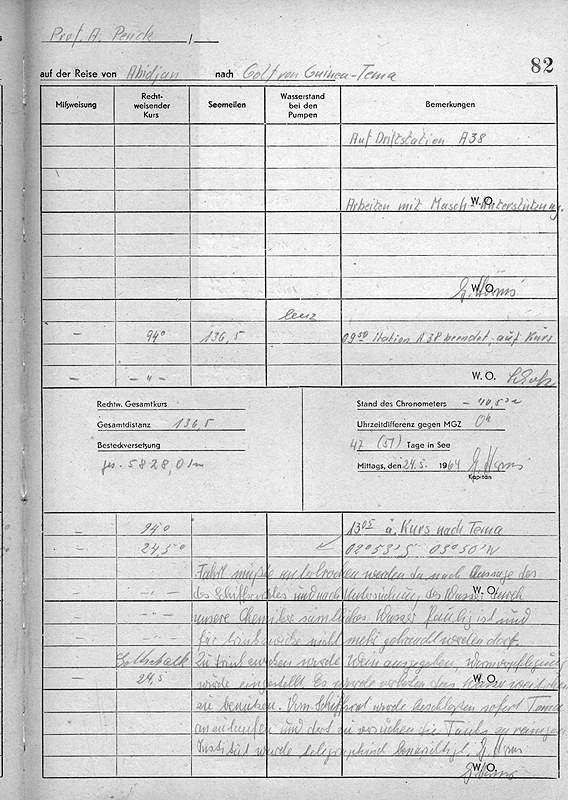 Prof. A. Penck /
auf der Reise von Abidjan nach Golf von Guinea-Tema 82
Mißweisung Recht-weisender Kurs Seemeilen Wasserstand bei den Pumpen Bemerkungen
Auf Driftstation A38
Arbeiten mit Masch-Unterstützung.
W.O.
W.O.
lenz
- 94° 136,5 09⁵⁰ Station A38 beendet, auf Kurs
- - " - W.O.
Rechtw. Gesamtkurs Stand des Chronometers
Gesamtdistanz 136,5 Uhrzeitdifferenz gegen MGZ 0h
Besteckversetzung 47 (51) Tage in See
ges. 5828,0 sm Mittags, den 24.5. 1964
Kapitän
- 94° 13⁰⁵ a. Kurs nach Tema
- 24,5° 02°53',5 03°50'W
Fahrt mußte unterbrochen werden da nach Aussage des
des Schiffsarztes und nach Untersuchung des Wassers durch W.O.
unsere Chemiker samtliches Wasser faulig ist und
für trinkzwecke nicht mehr gebraucht werden darf.
Gottschalk Zu trinkzwecken wurde Wein ausgegeben, Warmverpflegung
24,5 wurde eingestellt. Es wurde verboten das Wasser W.O.
zu benutzen. Vom Schiffsrat wurde beschloßen sofort Tema
anzulaufen und dort zu versuchen die Tanks zu reinigen
Institut wurde telegraphisch benachrichtigt.
W.O.